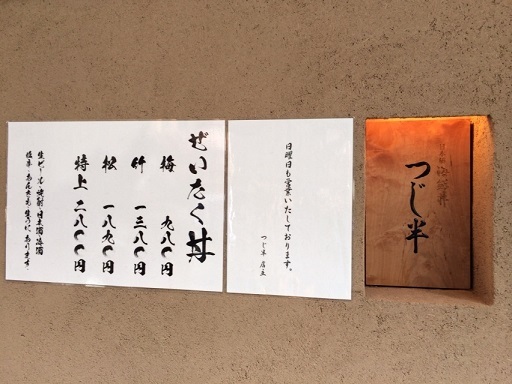 日本橋 海鮮丼
つじ半
日曜日も営業いたしております。
つじ半 店主
ぜいたく丼
梅 九八〇円
竹 一三八〇円
松 一八九〇円
特上 二八〇〇円
生ビール・焼酎・日本酒・梅酒